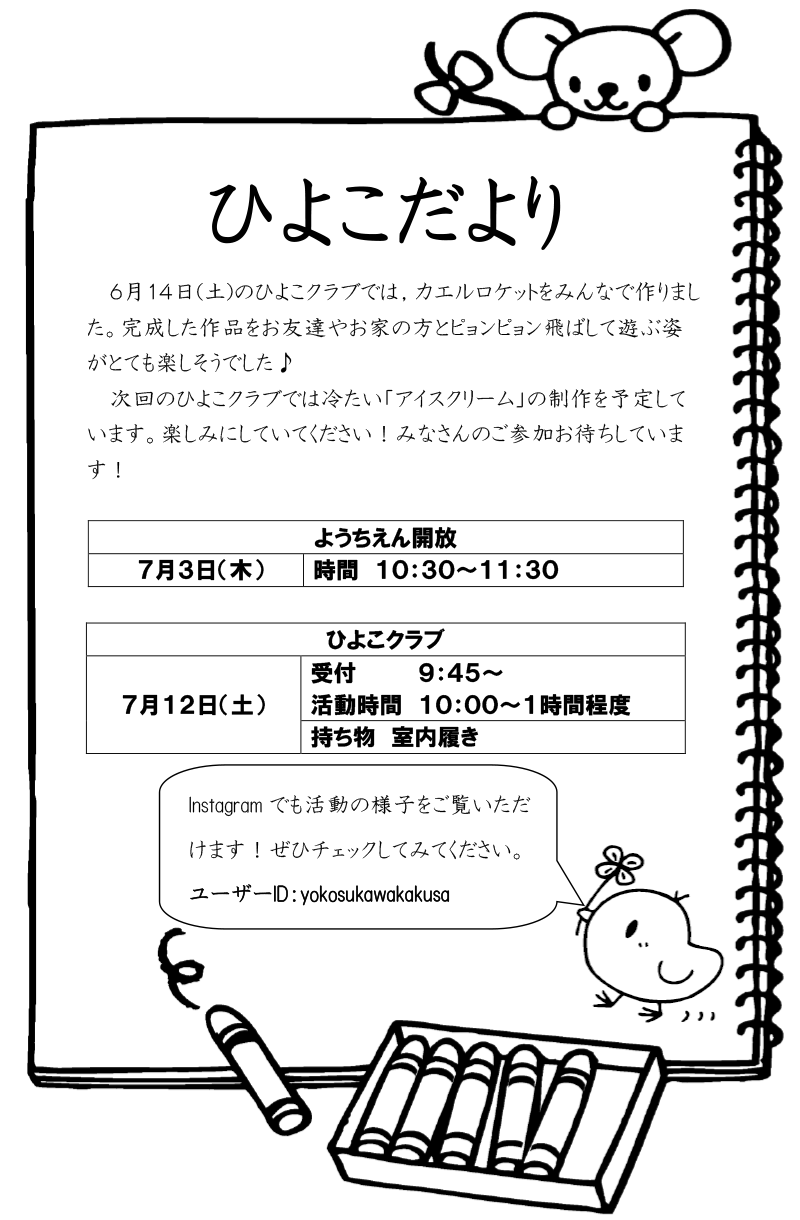 ひよこだより
６月１４日（土）のひよこクラブでは，カエルロケットをみんなで作りまし
た。完成した作品をお友達やお家の方とピョンピョン飛ばして遊ぶ姿
がとても楽しそうでした♪
次回のひよこクラブでは冷たい「アイスクリーム」の制作を予定して
います。楽しみにしていてください！みなさんのご参加お待ちしていま
す！
ようちえん開放
７月３日（木）　時間　１０：３０～１１：３０
ひよこクラブ
受付　９：４５～
７月１２日（土）　活動時間　１０：００～１時間程度
持ち物　室内履き
Instagram でも活動の様子をご覧いただ
けます！ぜひチェックしてみてください。
ユーザーID：yokosukawakakusa